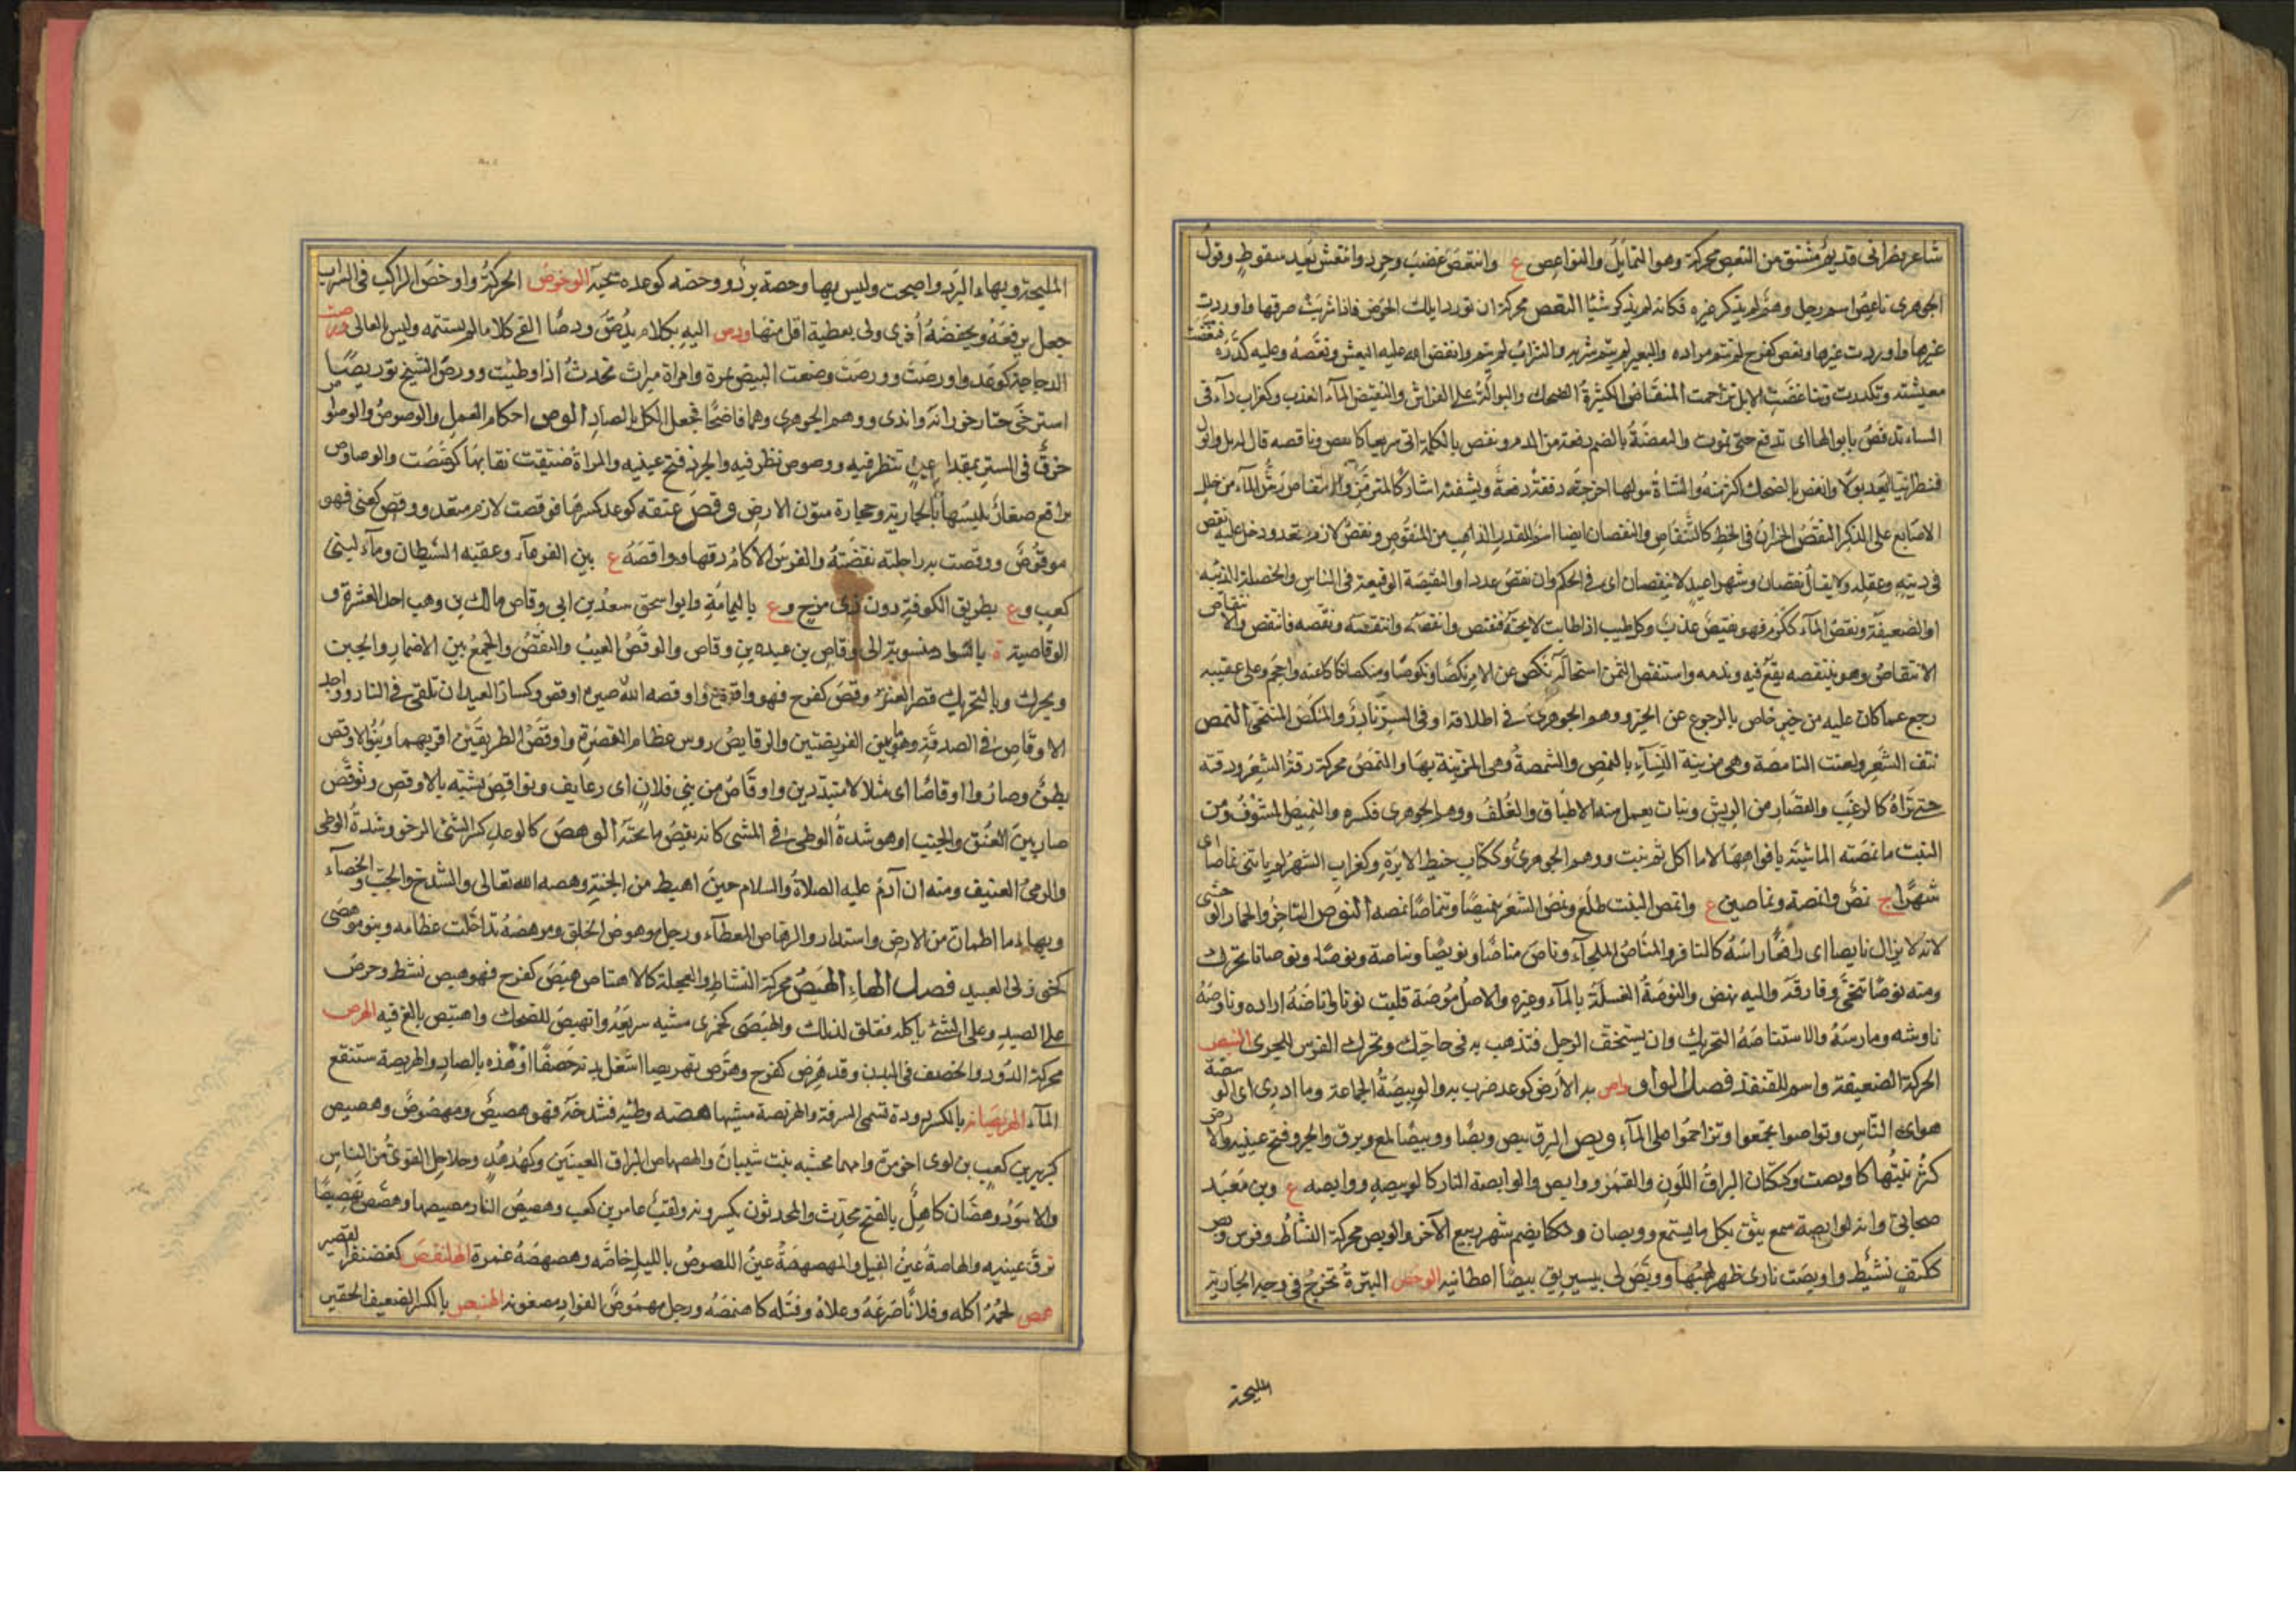 شاعر نصرانى قديم مشتق من النعص محركة وهو التمايل والنواعص ع وانتعص غضب وحرد وانتعش بعد سقوط وقول
الجوهرى ناعص اسم رجل وهم لم يذكر غيره فكانه لم يذكر شيئا النغص محركة ان تورد ابلك الحوض فاذا شربت صرفتها واوردت
غيرها واوردت غيرها ونغص كفرح لم يتم مراده والبعير لم يتم شربه والشراب لم يتم وانغص الله عليه العيش ونغصه وعليه كدره فتنغصت
معيشته وتكدرت وتناغصت الابل ازدحمت المنفاص الكثيرة الضحك والبوالة على الفراش والنفيص الماء العذب وكغراب داء فى
الشاء تنفص بابوالها اى تدفع حتى تموت والنفصة بالضم دفعة من الدم ونفص بالكلمة اتى سريعا كانفص ونافصه قال له بل وابول
فننظر اينا ابعد بولا وانفص بالضحك اكثر منه والشاة ببولها اخرجته دفعة دفعة وبشفته اشار كالمترمز والانتفاص رش الماء من خلل
الاصابع على الذكر النقص الخسران فى الحظ كالتنقاص والنقصان ايضا اسم للقدر الذاهب من المنقوص ونقص لازم متعد ودخل عليه نقص
فى دينه وعقله ولا يقال نقصان وشهرا عيد لا ينقصان اى فى الحكم وان نقص عددا والنقيصة الوقيعة فى الناس والخصلة الدنية
او الضعيفة ونقص الماء ككرم فهو نقيص عذب وكل طيب اذا طابت رايحته فنقيص وانقصه وانتقصه ونقصه فانتقص والانتقاص
الانتقاص وهو ينتقصه يقع فيه ويذمه واستنقص الثمن استحطه نكص عن الامر نكصا ونكوصا ومنكصا تكاكا عنه واحجم وعلى عقبيه
رجع عما كان عليه من خير خاص بالرجوع عن الخير ووهم الجوهرى فى اطلاقه او فى الشر نادر والمنكص المتنحى النمص
نتف الشعر ولعنت النامصة وهى مزينة النساء بالنمص والمتنمصة وهى المتزينة بها والنمص محركة رقة الشعر ودقته
حتى تراه كالزغب والقصار من الريش ونبات يعمل منه الاطباق والغلف ووهم الجوهرى فكسره والنميص المنتوف ومن
النبت ما نمصته الماشية بافواهها لا ما اكل ثم نبت ووهم الجوهرى وككتاب خيط الابرة وكغراب الشهر لم ياتنى نماصا اى
شهرا ج نمص وانمصة ونماصين ع وانمص النبت طلع ونمص الشعر تنميصا وتنماصا نمصه النوص التاخر والحمار الوحشى
لانه لا يزال نايصا اى رافعا راسه كالنافر والمناص الملجاء وناص مناصا ونويصا ونياصة ونوصا ونوصانا تحرك
ومنه نوصا تنحى وفارقه واليه نهض والنوصة الغسلة بالماء وغيره والاصل موصة قلبت نونا واناصه اراده وناوصه
ناوشه ومارسه والاستناصة التحريك وان يستخف الرجل فتذهب به فى حاجتك وتحرك الفرس للجرى النيص
الحركة الضعيفة واسم للقنفذ فصل الواو واص به الارض كوعد ضرب به والوبيصة الجماعة وما ادرى اى الوبيصة
هو اى الناس وتواصوا تجمعوا وتزاحموا على الماء وبص البرق يبص وبصا ووبيصا لمع وبرق والجرو فتح عينيه والارض
كثر نبتها كاوبصت وككتان البراق اللون والقمر ووابص والوابصة النار كالوبيصة ووابصة ع وبن معبد
صحابى وانه لوابصة سمع يثق بكل ما يسمع ووبصان ويكضم شهر ربيع الآخر والوبص محركة النشاط وفرس وبص
ككتف نشيط واوبصت نارى ظهر لهبها ووبص لى بيسير تبيصا اعطانيه الوحص البثرة تخرج فى وجه الجارية
المليحة
المليحة وبهاء البرد واصبحت وليس بها وحصة برد ووحصه كوعده سحبه الوخوص الحركة واوخص الراكب فى السراب
جعل يرفعه ويخفضه اخرى ولى بعطية اقل منها ودص اليه بكلام يدص ودصا القى كلاما لم يستتمه وليس بالعالى ورصت
الدجاجة كوعد واورصت وورصت وضعت البيض بمرة وامراة ميراث تحدث اذا وطئت وورص الشيخ توريصا
استرخى حتار خورانه وابدى ووهم الجوهرى وهما فاضحا فجعل الكل بالضاد الوص احكام العمل والوصوص والوصواص
خرق فى الستر بمقدار عين تنظر فيه ووصوص نظر فيه والجرو فتح عينيه والمراة ضيقت نقابها كوصصت والوصاوص
براقع صغار تلبسها الجارية وحجارة متون الارض وقص عنقه كوعد كسرها فوقصت لازم متعد ووقص كعنى فهو
موقوص ووقصت به راحلته تقصته والفرس الاكام دقها وواقصة ع بين الفرعاء وعقبة الشيطان وماء لبنى
كعب وع بطريق الكوفة دون ذى مرخ وع باليمامة وابو اسحق سعد بن ابى وقاص مالك بن وهب احد العشرة و
الوقاصية ة بالسواد منسوبة الى وقاص بن عبدة بن وقاص والوقص العيب والنقص والجمع بين الاضمار والخبن
ويحرك وبالتحريك قصر العنق وقص كفرح فهو اوقص واوقصه الله صيره اوقص وكسار العيدان تلقى فى النار وواحد
الاوقاص فى الصدقة وهو ما بين الفريضتين والوقايص روس عظام القصرة واوقص الطريقين اقربهما وبنو الاوقص
بطن وصاروا اوقاصا اى شلالا متبددين واوقاص من بنى فلان اى زعانف وتواقص تشبه بالاوقص وتوقص
صار بين العنق والخبب او هو شدة الوطى فى المشى كانه يقص ما تحته الوهص كالوعد كسر الشئ الرخو وشدة الوطى
والرمى العنيف ومنه ان آدم عليه الصلاة والسلام حين اهبط من الجنة وهصه الله تعالى والشدخ والجب والخصاء
وبهاء ما اطمان من الارض واستدار والوهاص المعطاء ورجل موهوص الخلق وموهصه تداخلت عظامه وبنو موهصى
كخوزلى العبيد فصل الهاء الهبص محركة النشاط والعجلة كالاهتباص هبص كفرح فهو هبص نشط وحرص
على الصيد وعلى الشئ ياكله فقلق لذلك والهبصى كجمزى مشية سريعة وانهبص للضحك واهتبص بالغ فيه الهرص
محركة الدود والحصف فى البدن وقد هرص كفرح وهرص تهريصا اشتعل بدنه حصفا او هذه بالضاد والهريصة مستنقع
الماء الهرنصانة بالكسر دودة تسمى السرفة والهرنصة مشيها هصه وطئه فشدخه فهو هصيص ومهصوص وهصيص
كزبير بن كعب بن لوى اخو مرة وامهما محشية بنت شيبان والهصهاص البراق العينين وكهدهد وحلاحل القوى من الناس
والاسود وهصان كاهل بالفتح محدث والمحدثون يكسرونه ولقب عامر بن كعب وهصيص النار بصيصها وهصص تهصيصا
برق عينيه والهاصة عين الفيل والهصهصة عين اللصوص بالليل خاصة وهصهصه غمزه الهلنقص كغضنفر القصير
همص لحمه اكله وفلانا صرعه وعلاه وقتله كاهتمصه ورجل مهموص الفواد مضغوثه الهنبص بالكسر الضعيف الحقير